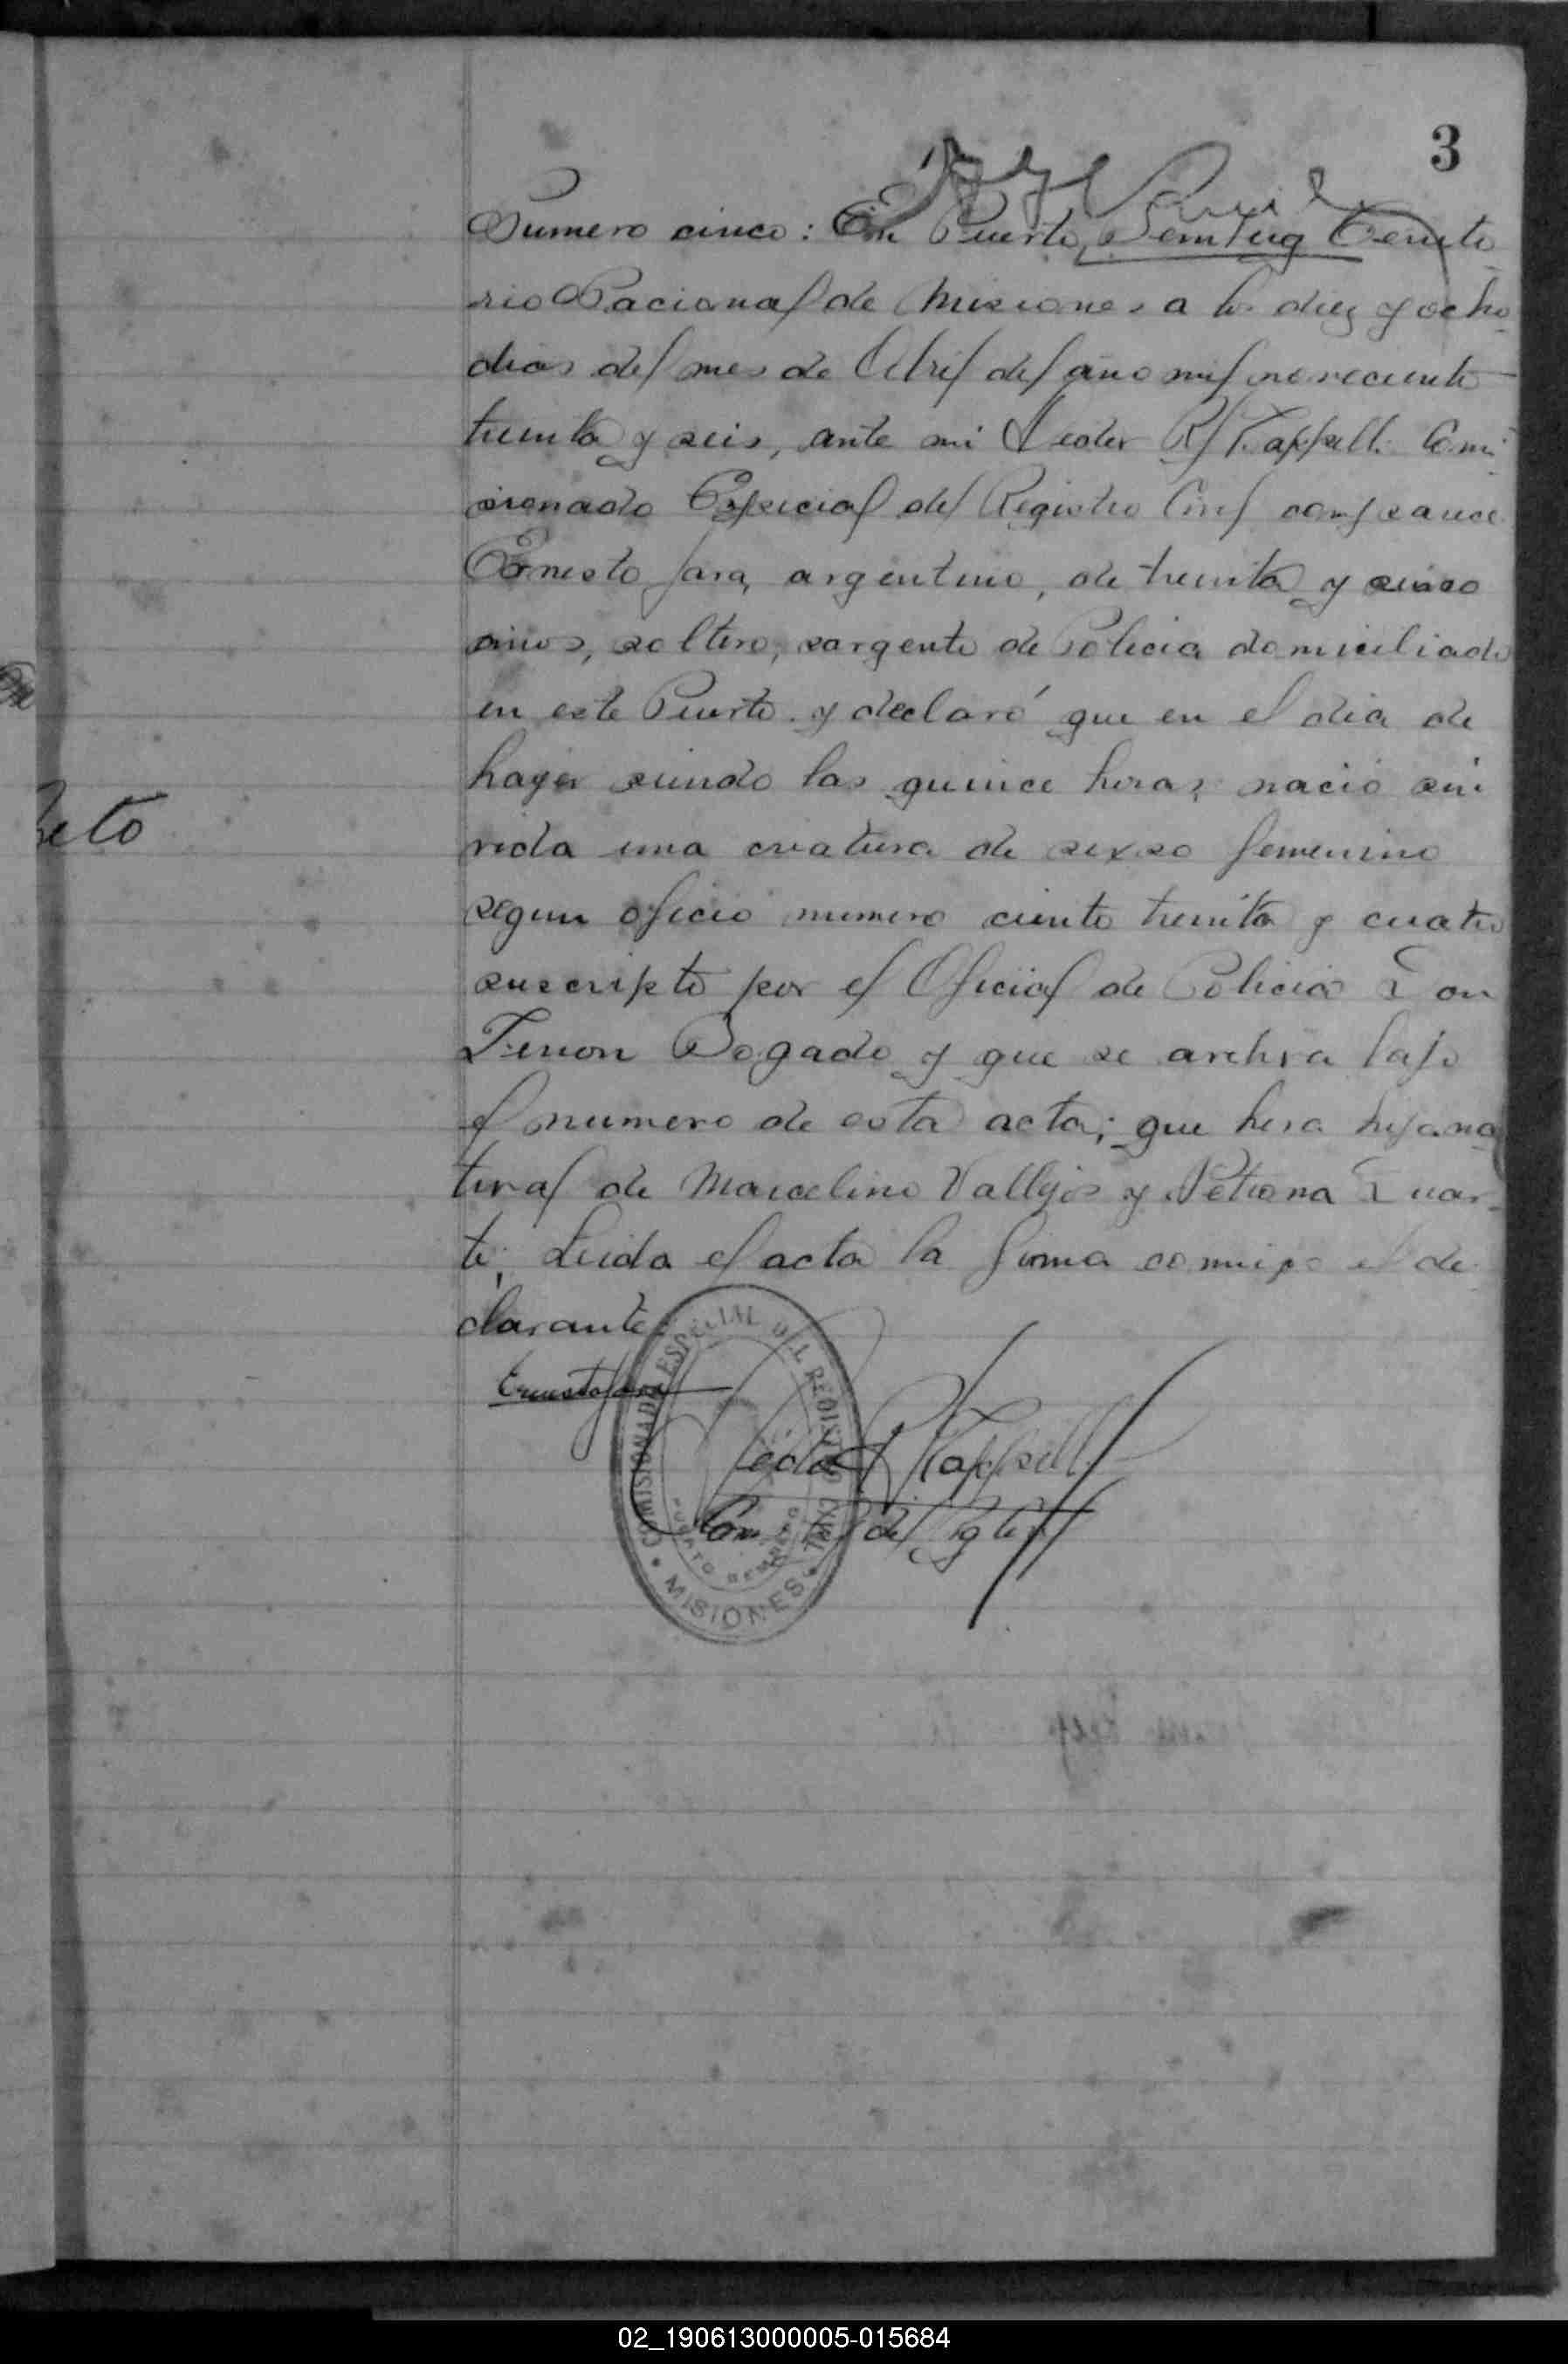 3
Numero cinco: En Puerto Bemberg Territo
rio Nacional de Misiones a los diez y ocho
dias del mes de Abril del año mil novecientos
treinta y seis, ante mi Hector R. Kappell. Comi
sionado Especial del Registro Civil comparece
Ernesto Jara, argentino, de treinta y cinco
años, soltero, sargento de Policia domiciliado
en este Puerto y declaró que en el dia de
hayer siendo las quince horas nació sin
vida una criatura de sexso femenino
segun oficio numero ciento treinta y cuatro
suscripto por el Oficial de Policia Don
Zenon Bogado y que se archiva bajo
el numero de esta acta; que hera hija na
tural de Marcelino Vallejos y Petrona Duar-
te; Leida el acta la firma conmigo el de
clarante
Ernesto Jara
COMISIONADO ESPECIAL DEL REGISTRO CIVIL
PUERTO BEMBERG
MISIONES
Hector R Kappell
eto
02_190613000005-015684